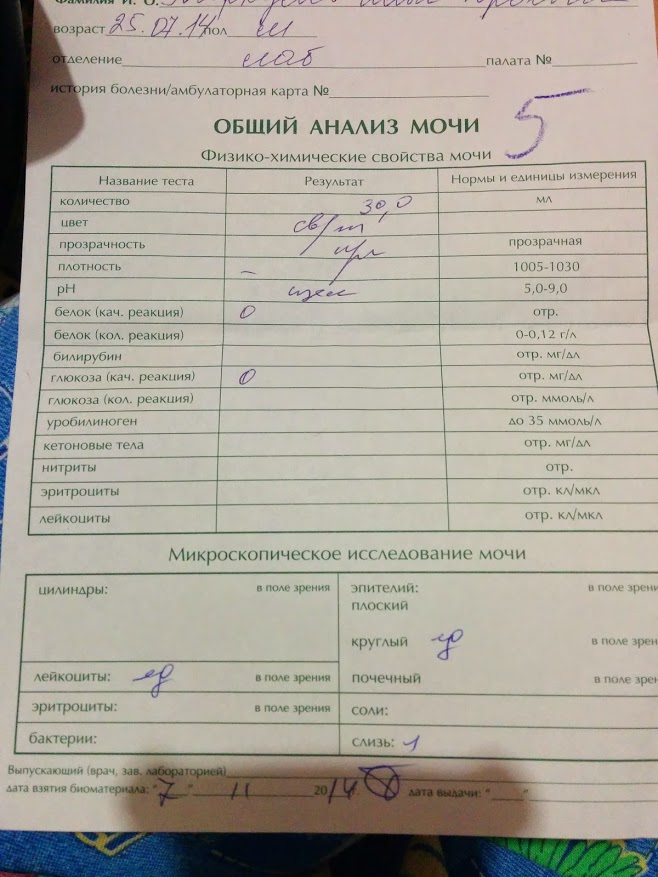 Фамилия И. О.
возраст 25.07.14 пол м
отделение палата №
история болезни/амбулаторная карта №
ОБЩИЙ АНАЛИЗ МОЧИ 5
Физико-химические свойства мочи
Название теста Результат Нормы и единицы измерения
количество 30,0 мл
цвет
прозрачность прл прозрачная
плотность – 1005-1030
pH щел 5,0-9,0
белок (кач. реакция) 0 отр.
белок (кол. реакция) 0-0,12 г/л
билирубин отр. мг/дл
глюкоза (кач. реакция) 0 отр. мг/дл
глюкоза (кол. реакция) отр. ммоль/л
уробилиноген до 35 ммоль/л
кетоновые тела отр. мг/дл
нитриты отр.
эритроциты отр. кл/мкл
лейкоциты отр. кл/мкл
Микроскопическое исследование мочи
цилиндры: в поле зрения
лейкоциты: ед в поле зрения
эритроциты: в поле зрения
бактерии:
эпителий: в поле зрени
плоский
круглый ед в поле зрен
почечный в поле зрен
соли:
слизь: 1
Выпускающий (врач, зав. лабораторией)
дата взятия биоматериала: "7" 11 2014. дата выдачи: " "